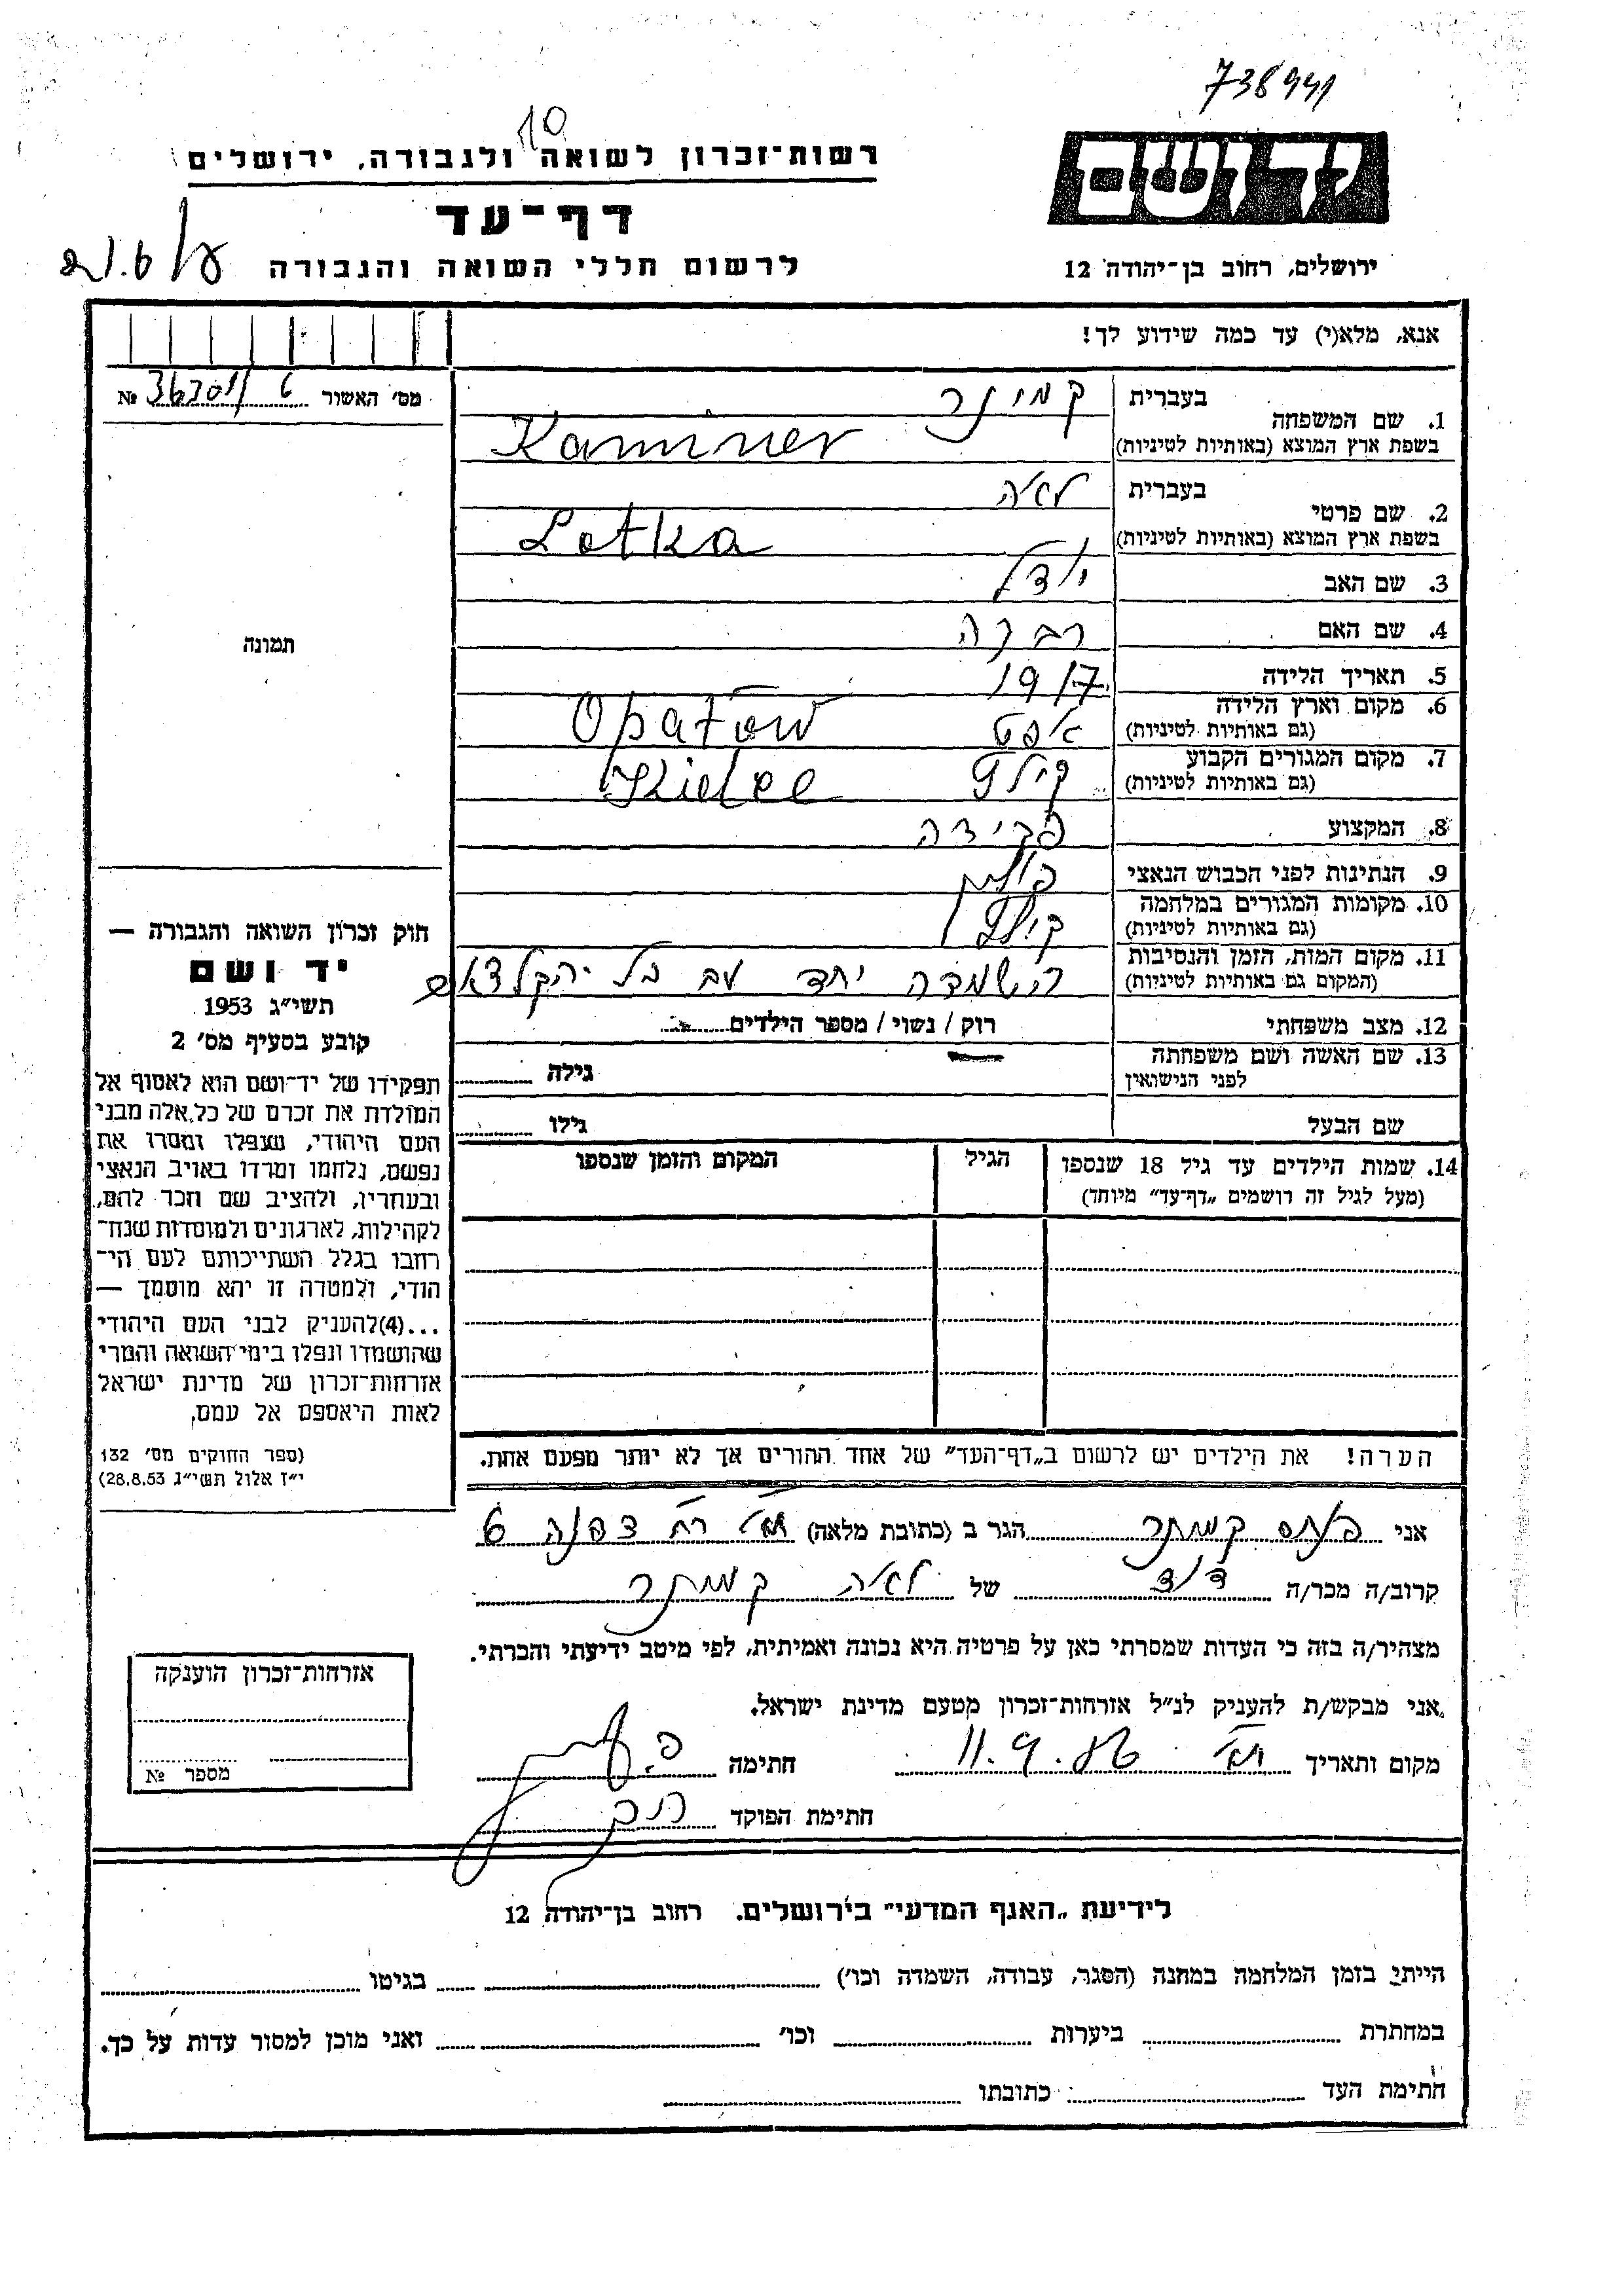 738941
10
רשות־זכרון לשואה ולגבורה, ירושלים
יד ושם
דף־עד
לרשום חללי השואה והגבורה
ירושלים, רחוב בן־יהודה 12
אנא, מלא(י) עד כמה שידוע לך!
מס' האשור
№
1. שם המשפחה
בעברית קמינר
בשפת ארץ המוצא (באותיות לטיניות) Kaminer
2. שם פרטי
בעברית לאה
בשפת ארץ המוצא (באותיות לטיניות) Lotka
3. שם האב יודל
4. שם האם רבקה
5. תאריך הלידה 1917
6. מקום וארץ הלידה
(גם באותיות לטיניות) אפט Opatów
7. מקום המגורים הקבוע
(גם באותיות לטיניות) קילץ Kielce
8. המקצוע פקידה
9. הנתינות לפני הכבוש הנאצי פולין
10. מקומות המגורים במלחמה
(גם באותיות לטיניות) קילץ
11. מקום המות, הזמן והנסיבות
(המקום גם באותיות לטיניות) הושמדה יחד עם כל
12. מצב משפחתי רוק / נשוי / מספר הילדים
13. שם האשה ושם משפחתה
לפני הנישואין
גילה
שם הבעל גילו
14. שמות הילדים עד גיל 18 שנספו
(מעל לגיל זה רושמים „דף־עד" מיוחד)
הגיל
המקום והזמן שנספו
הערה! את הילדים יש לרשום ב„דף־העד" של אחד ההורים אך לא יותר מפעם אחת.
תמונה
חוק זכרון השואה והגבורה —
יד ושם
תשי"ג 1953
קובע בסעיף מס' 2
תפקידו של יד־ושם הוא לאסוף אל
המולדת את זכרם של כל אלה מבני
העם היהודי, שנפלו ומסרו את
נפשם, נלחמו ומרדו באויב הנאצי
ובעוזריו, ולהציב שם וזכר להם,
לקהילות, לארגונים ולמוסדות שנח־
רבו בגלל השתייכותם לעם הי־
הודי, ולמטרה זו יהא מוסמך —
...(4)להעניק לבני העם היהודי
שהושמדו ונפלו בימי השואה והמרי
אזרחות־זכרון של מדינת ישראל
לאות היאספם אל עמם.
(ספר החוקים מס' 132
י"ז אלול תשי"ג 28.8.53)
אני פנחס קמינר הגר ב (כתובת מלאה) ת"א רח' דפנה 6
קרוב/ה מכר/ה דוד של לאה קמינר
מצהיר/ה בזה כי העדות שמסרתי כאן על פרטיה היא נכונה ואמיתית, לפי מיטב ידיעתי והכרתי.
אני מבקש/ת להעניק לנ"ל אזרחות־זכרון מטעם מדינת ישראל.
מקום ותאריך ת"א 11.9.86 חתימה
חתימת הפוקד
אזרחות־זכרון הוענקה
מספר №
לידיעת „האגף המדעי" בירושלים. רחוב בן־יהודה 12
הייתי בזמן המלחמה במחנה (הסגר, עבודה, השמדה וכו') בגיטו
במחתרת ביערות וכו' ואני מוכן למסור עדות על כך.
חתימת העד כתובתו